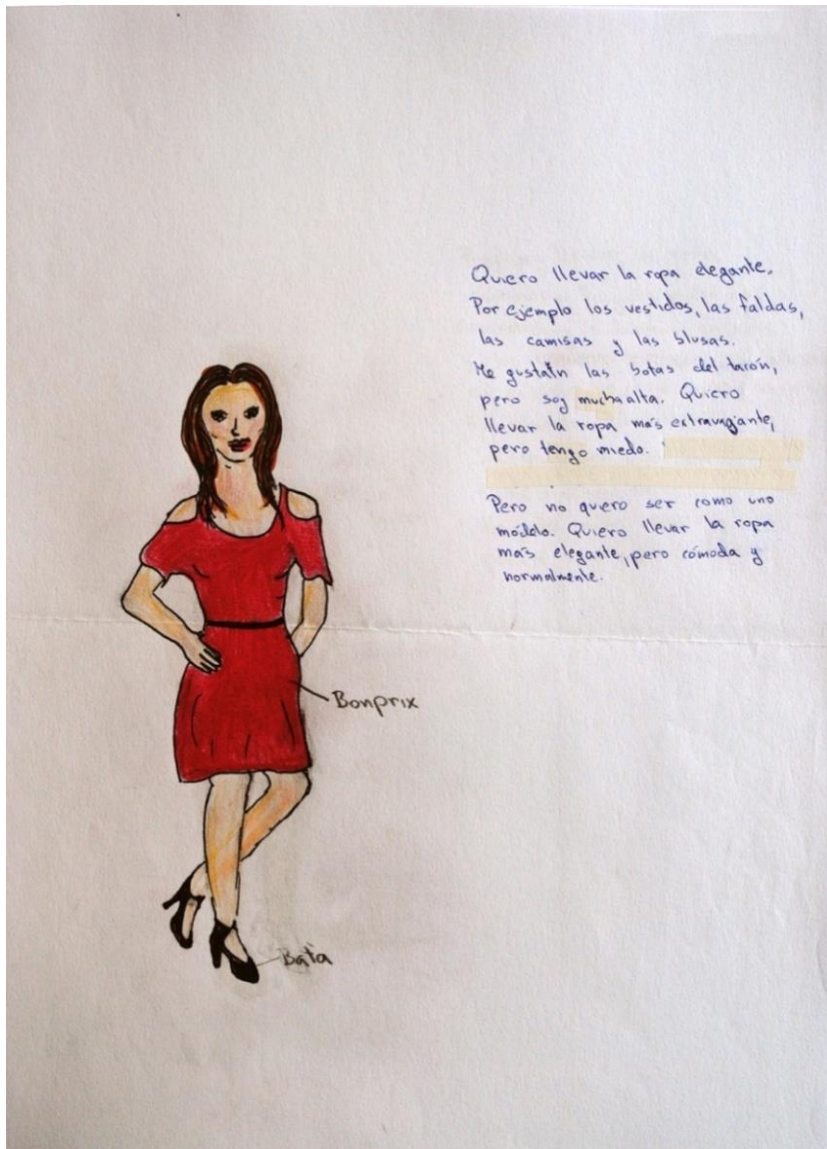 Quiero llevar la ropa elegante.
Por ejemplo los vestidos, las faldas,
las camisas y las blusas.
Me gustaín las botas del tarón,
pero soy mucha alta. Quiero
llevar la ropa más extravagante,
pero tengo miedo.
Pero no quero ser como uno
módelo. Quiero llevar la ropa
más elegante, pero cómoda y
normalmente.
Bonprix
Bata